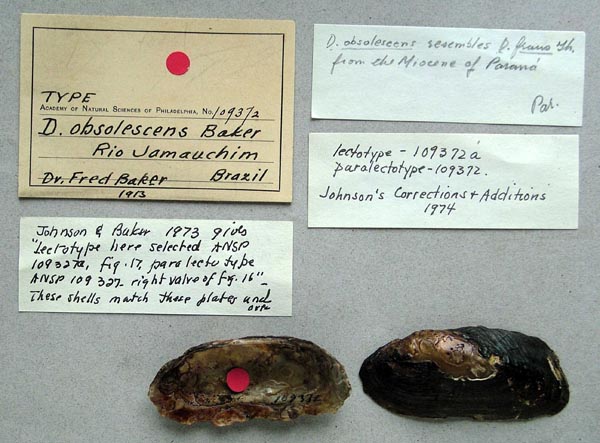 TYPE
ACADEMY OF NATURAL SCIENCES OF PHILADELPHIA, No. 109372
D. obsolescens Baker
Rio Jamauchim
Dr. Fred Baker Brazil
1913
D. obsolescens resembles D. Ih.
from the Miocene of Paraná
Par.
lectotype - 109372a
paralectotype - 109372.
Johnson's Corrections & Additions
1974
Johnson & Baker 1973 gives
"Lectotype here selected ANSP
109327a, fig. 17, paralectotype
ANSP 109 327 - right valve of fig. 16" -
These shells match those plates and
over
109372